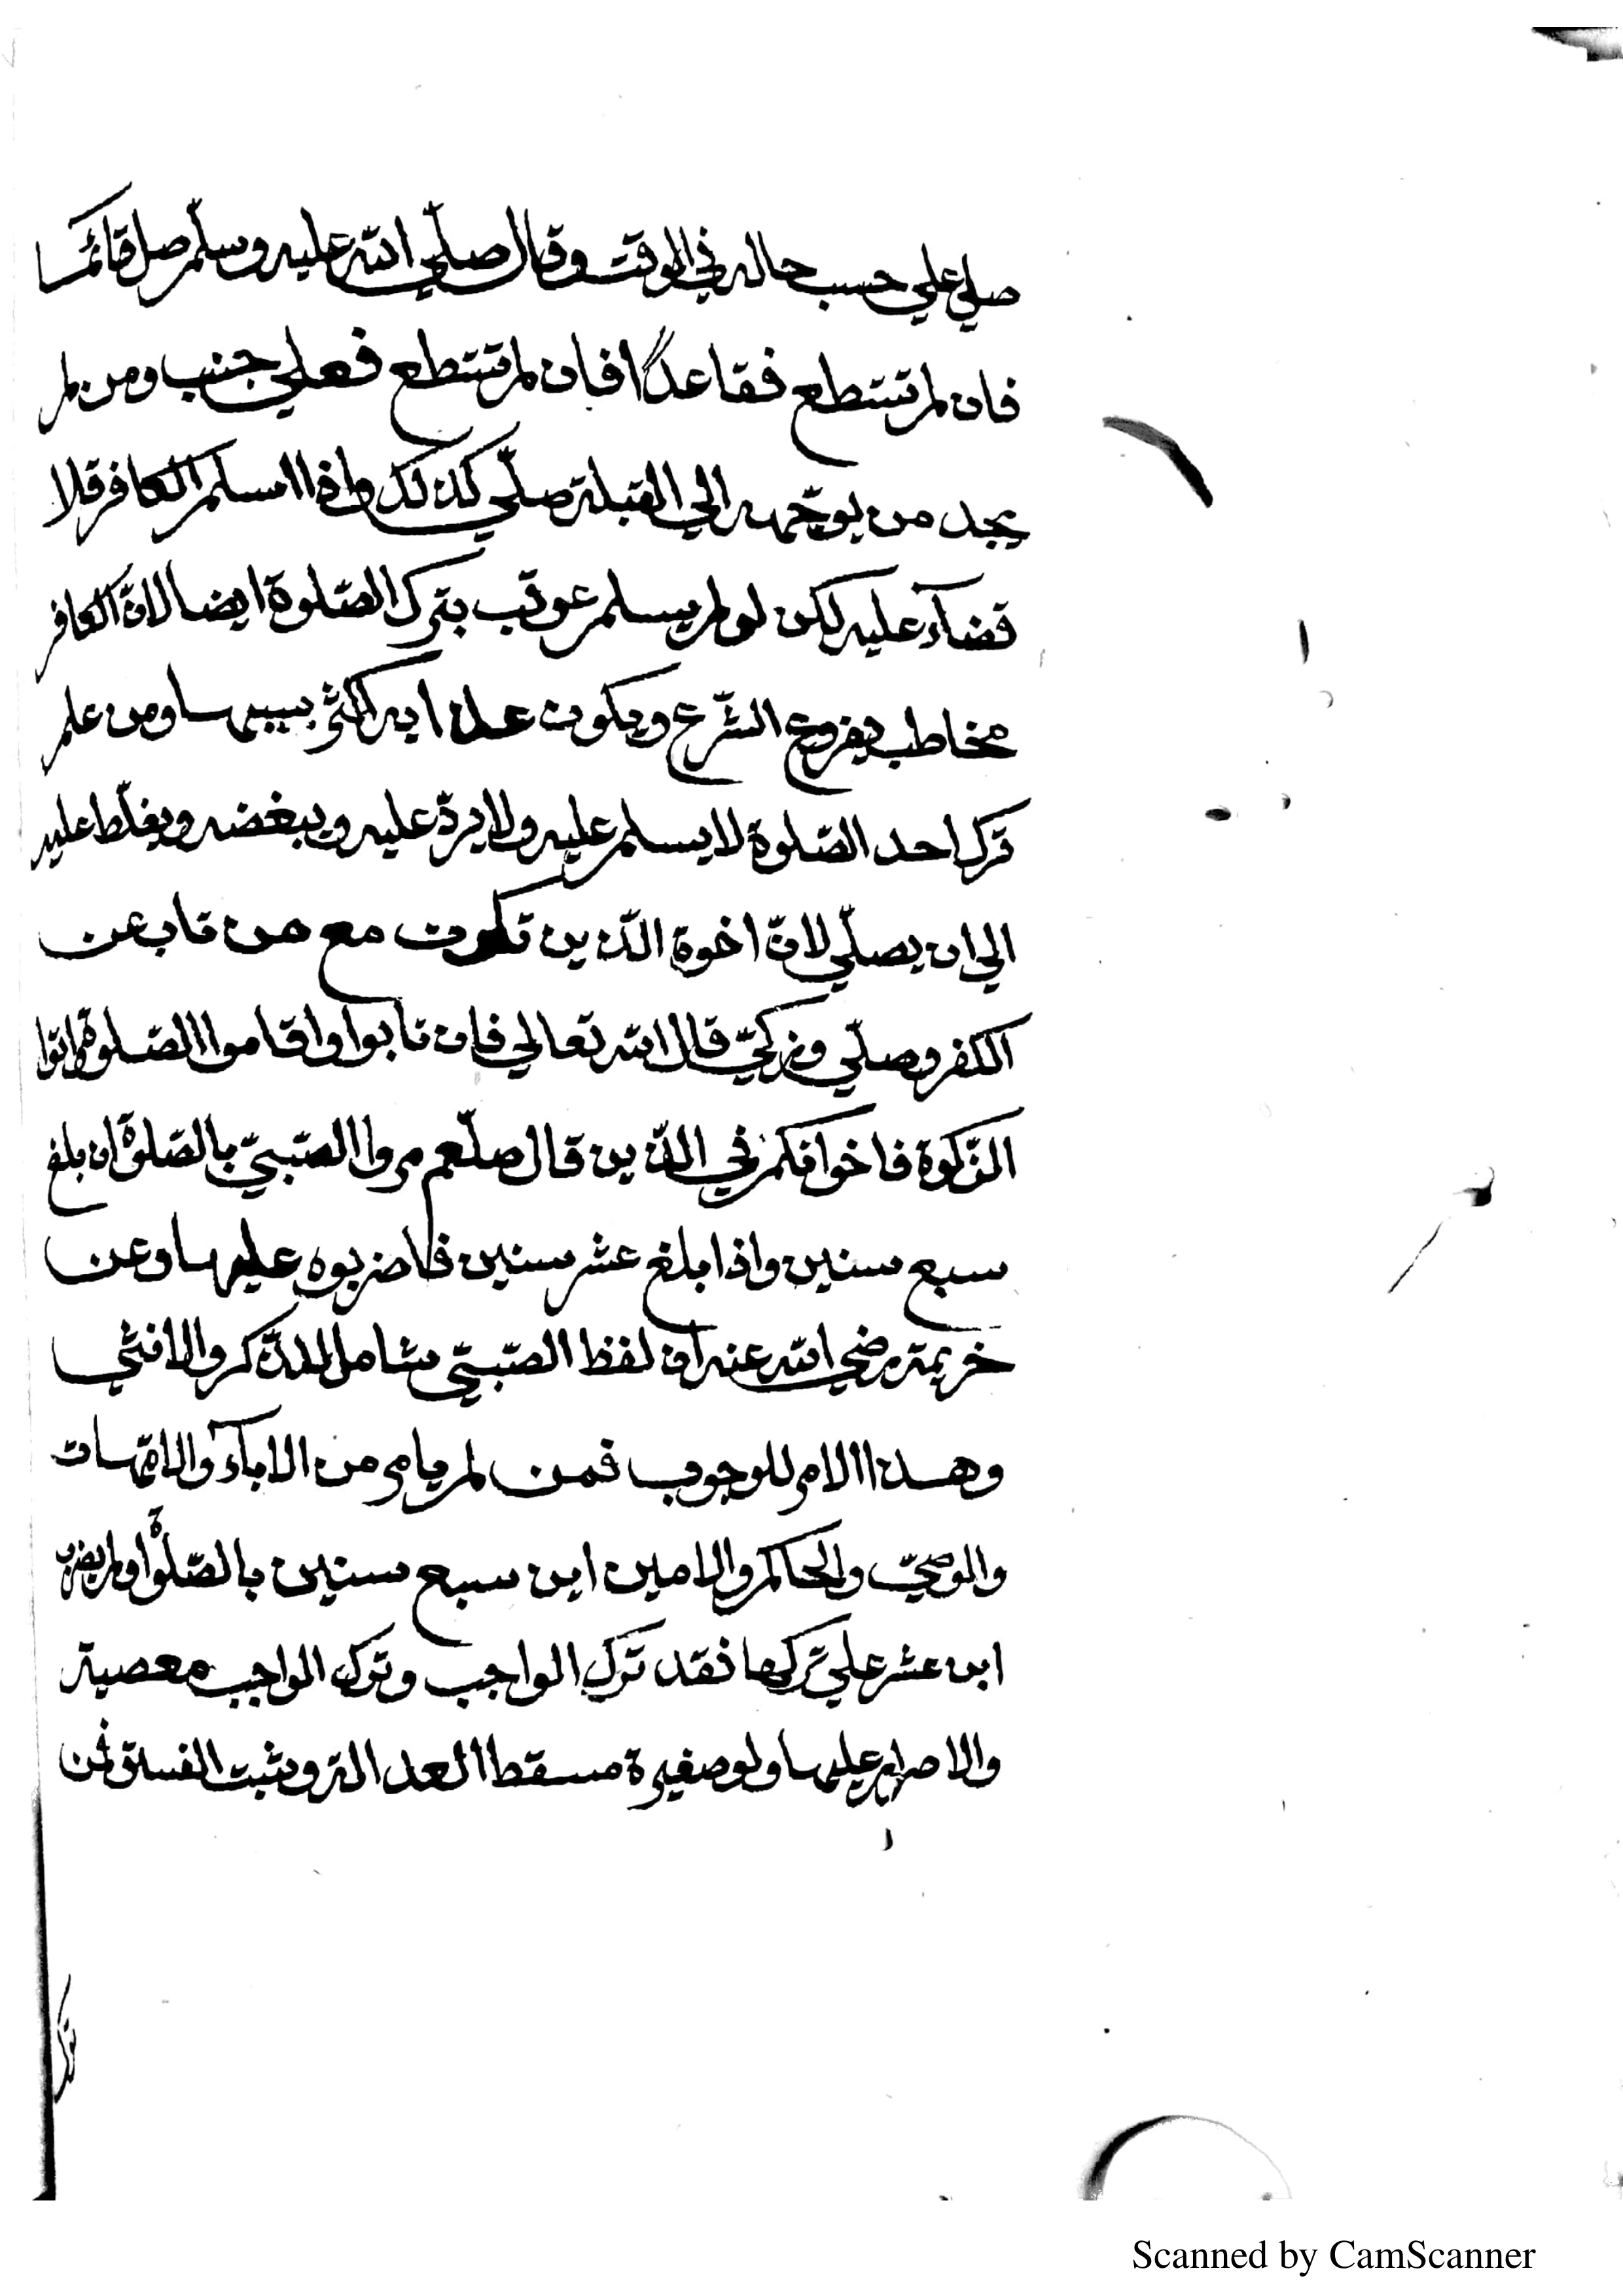 صلي علي حسب حاله في الوقت وقال صلّي الله عليه وسلّم صل قائمًا
فان لم تستطع فقاعدًا فان لم تستطع فعلي جنب ومن لم
يجد من يوجّهه الي القبلة صلّي كذلك واذا اسلم الكافر فلا
قضآء عليه لكن لو لم يسلم عوقب بترك الصّلوة ايضا لانّ الكافر
مخاطب بفروع الشّرع ويكون عذابه اكثر بسببها ومن علم
ترك احد الصّلوة لا يسلم عليه ولا يردّ عليه ويبغضه ويغلّظ عليه
الي ان يصلّي لانّ اخوة الدّين تكون مع من تاب عن
الكفر وصلّي وزكّيّ قال الله تعالي فان تابوا واقاموا الصّلوة واتوا
الزّكوة فاخوانكم في الدّين قال صلّعم مروا الصّبيّ بالصّلوة ان بلغ
سبع سنين واذا بلغ عشر سنين فاضربوه عليها وعن
خزيمة رضي الله عنه ان لفظ الصّبيّ شامل للذّكر والانثي
وهذا الامر للوجوب فمن لم يامر من الابآء والامّهات
والوصيّ والحاكم والامين ابن سبع سنين بالصّلوة او لم يضرب
ابن عشر علي تركها فقد ترك الواجب وترك الواجب معصية
والاصرار عليها ولو صغيرة مسقط العدالة ويثبت الفسق فمن
Scanned by CamScanner